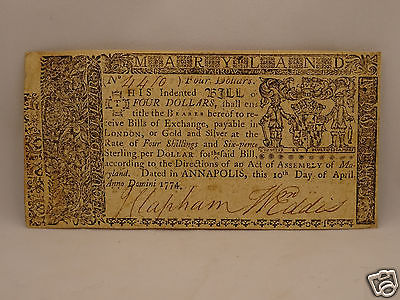 MARYLAND
Nº 4410) Four Dollars.
THIS Indented BILL of
FOUR DOLLARS, shall en-
title the BEARER hereof to re-
ceive Bills of Exchange, payable in
LONDON, or Gold and Silver at the
Rate of Four Shillings and Six-pence
Sterling per DOLLAR for said Bill,
according to the Directions of an Act of ASSEMBLY of Ma-
ryland. Dated in ANNAPOLIS, this 10th Day of April,
Anno Domini 1774.
J Clapham Wm Eddis